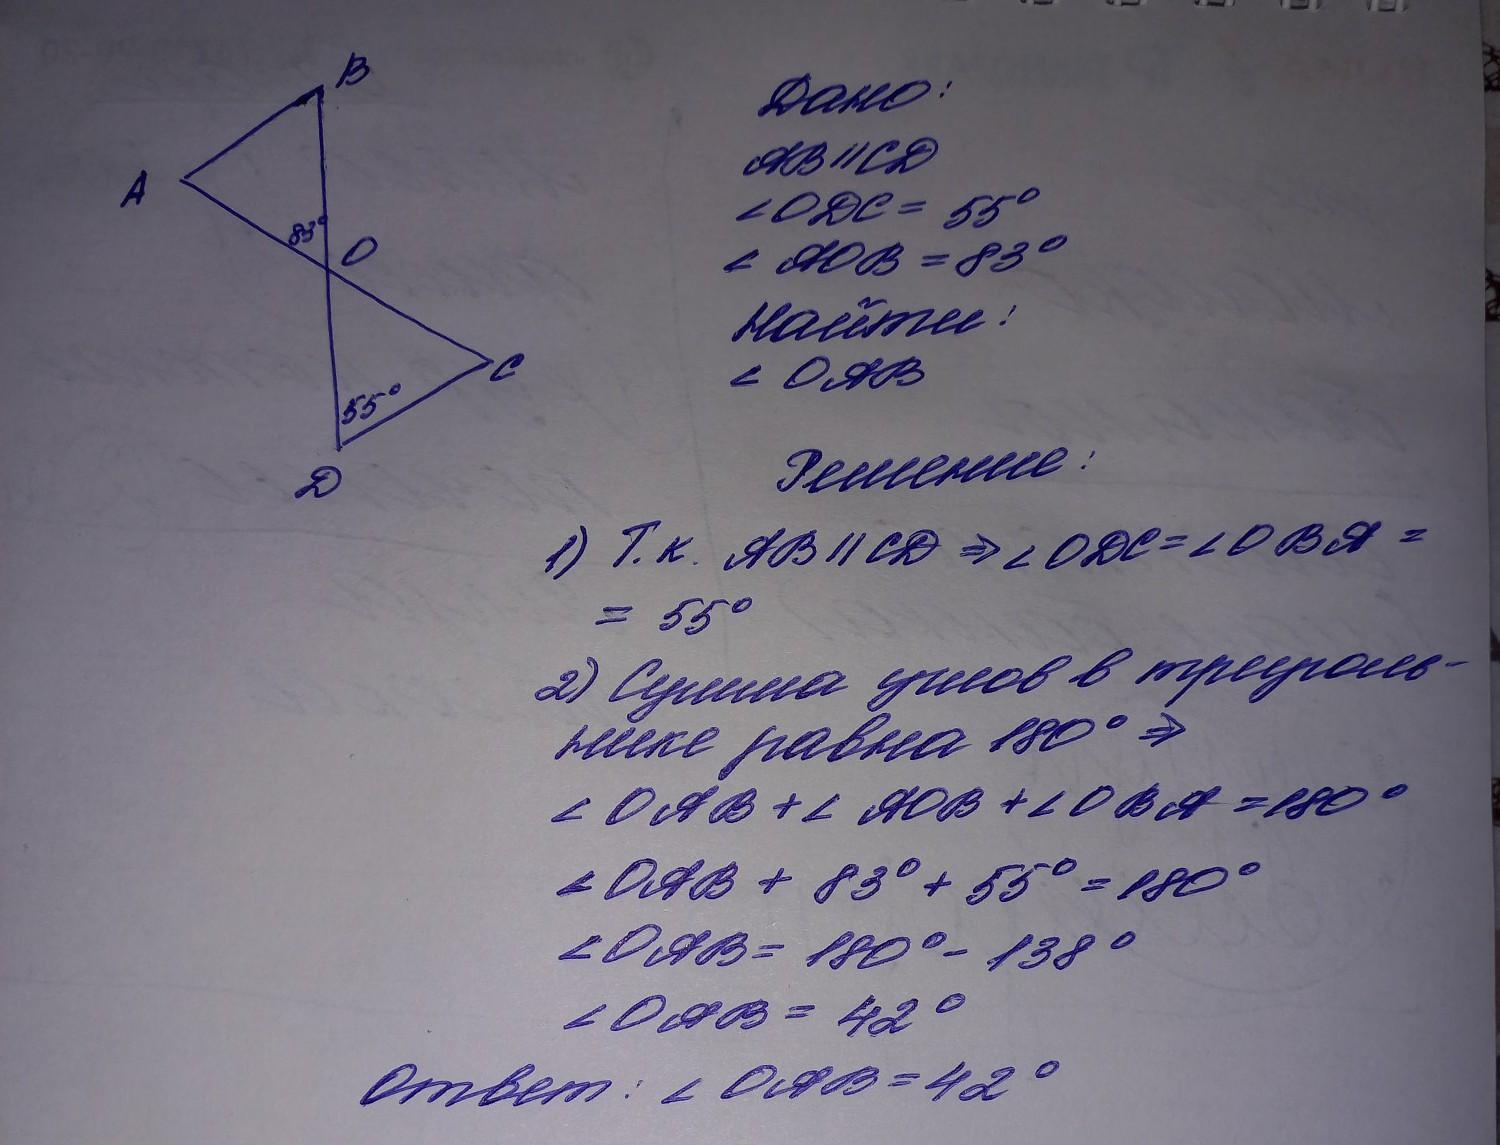 B
A
83°
O
C
55°
D
Дано:
AB || CD
∠ODC = 55°
∠AOB = 83°
Найти:
∠OAB
Решение:
1) Т.к. AB || CD ⇒ ∠ODC = ∠OBA =
= 55°
2) Сумма углов в треуголь-
нике равна 180° ⇒
∠OAB + ∠AOB + ∠OBA = 180°
∠OAB + 83° + 55° = 180°
∠OAB = 180° - 138°
∠OAB = 42°
Ответ: ∠OAB = 42°